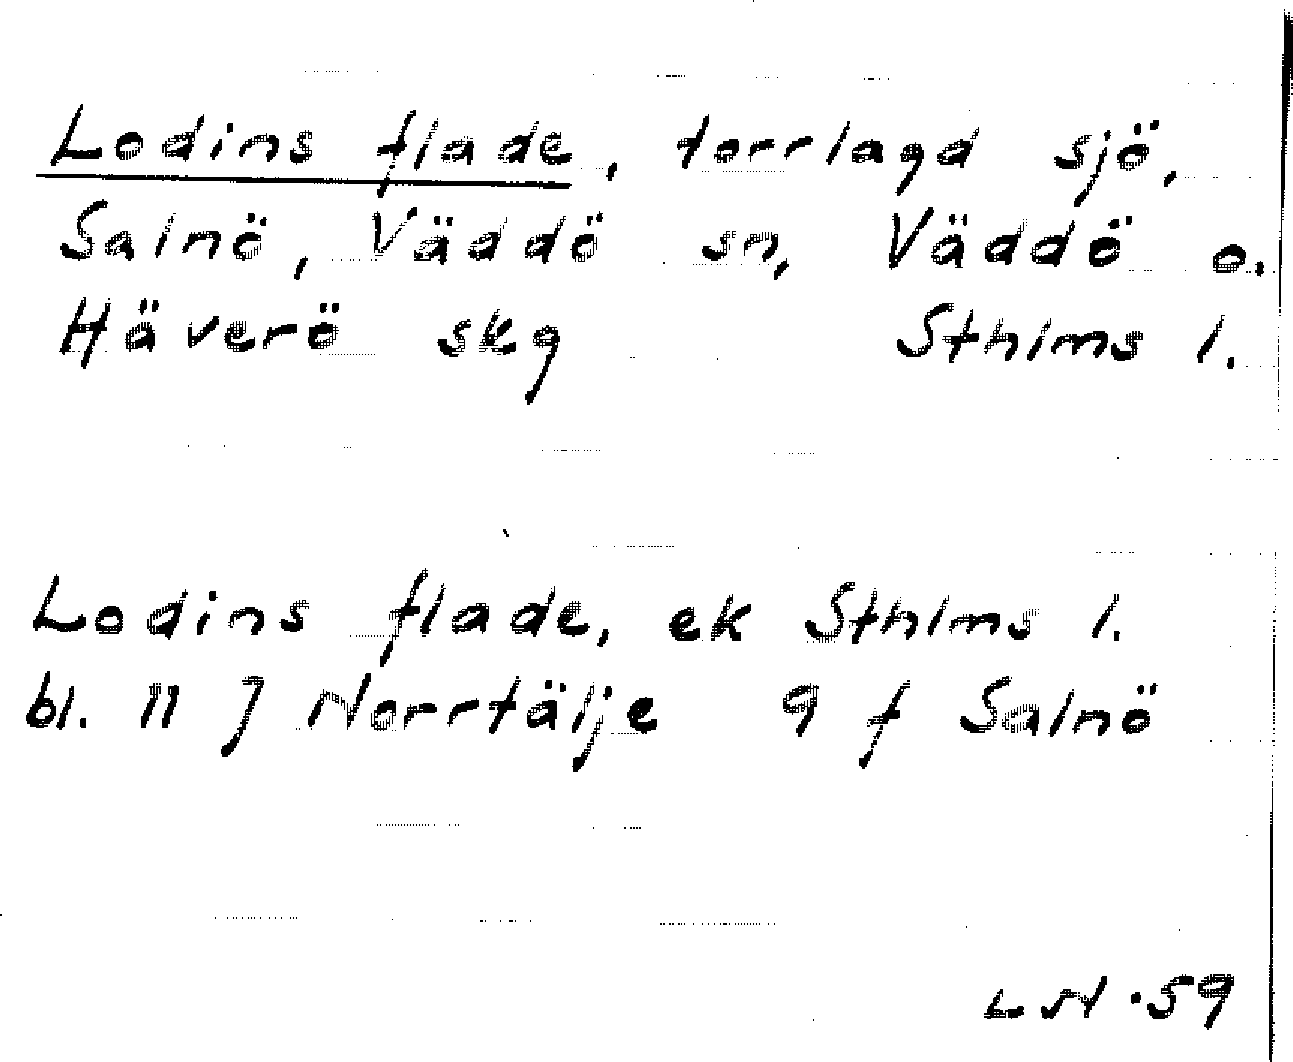 Lodins flade, torrlagd sjö,
Salnö, Väddö sn, Väddö o.
Häverö skg Sthlms l.
Lodins flade, ek Sthlms l.
bl. 11 J Norrtälje 9 f Salnö
LSN ·59